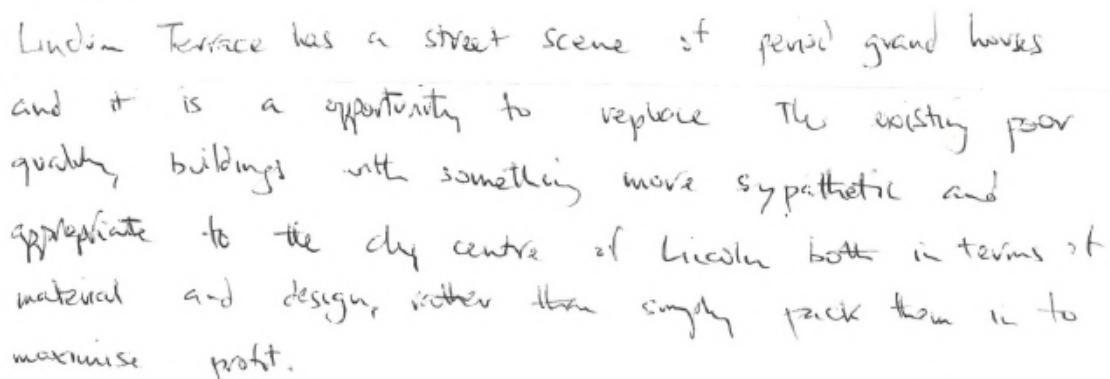 Lindum Terrace has a street scene of period grand houses
and it is a opportunity to replace The existing poor
quality buildings with something more sypathetic and
appropriate to the city centre of Lincoln both in terms of
material and design, rather than simply pack them in to
maximise profit.